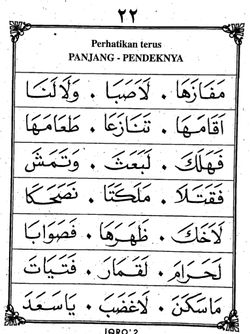 ٢٢
Perhatikan terus
PANJANG - PENDEKNYA
مَفَازَهَا • لَاصَبَا • وَلَالَنَا
اَقَامَهَا • تَنَازَعَا • طَعَامَهَا
فَهَلَكَ • لَبَعَثَ • وَتَمَشَ
فَقَتَلَا • مَلَكَتَا • نَصَحَكَا
لَاَخَكَ • ظَهَرَهَا • فَصَوَابَا
لَحَرَامَ • لَقَمَارَ • فَتَيَاتَ
مَاسَكَنَ • لَاغَضَبَ • يَاسَعَدَ
IQRO'2